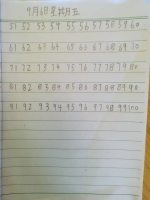 9月6日星期五
51 52 53 54 55 56 57 58 59 60
61 62 63 64 65 66 67 68 69 70
71 72 73 74 75 76 77 78 79 80
81 82 83 84 85 86 87 88 89 90
91 92 93 94 95 96 97 98 99 100